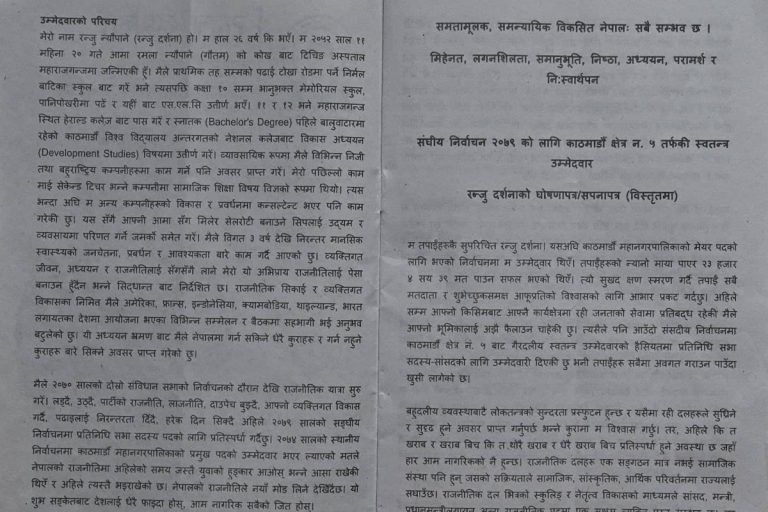 उम्मेदवारको परिचय
मेरो नाम रन्जु न्यौपाने (रन्जु दर्शना) हो। म हाल २६ वर्ष कि भएँ। म २०५२ साल ११
महिना २० गते आमा रमला न्यौपाने (गौतम) को कोख बाट टिचिङ अस्पताल
महाराजगन्जमा जन्मिएकी हूँ। मैले प्राथमिक तह सम्मको पढाई टोखा रोडमा पर्ने निर्मल
बाटिका स्कुल बाट गरें भने त्यसपछि कक्षा १० सम्म भानुभक्त मेमोरियल स्कुल,
पानिपोखरीमा पढें र यहीं बाट एस.एल.सि उतीर्ण भएँ। ११ र १२ भने महाराजगन्ज
स्थित हेराल्ड कलेज बाट पास गरें र स्नातक (Bachelor's Degree) पहिले बालुवाटारमा
रहेको काठमाडौँ विश्व विद्यालय अन्तरगतको नेशनल कलेजबाट विकास अध्ययन
(Development Studies) विषयमा उतीर्ण गरें। व्यावसायिक रूपमा मैले विभिन्न निजी
तथा बहुराष्ट्रिय कम्पनीहरूमा काम गर्ने पनि अवसर प्राप्त गरें। मेरो पछिल्लो काम
माई सेकेन्ड टिचर भन्ने कम्पनीमा सामाजिक शिक्षा विषय विज्ञको रूपमा थियो। त्यस
भन्दा अघि म अन्य कम्पनीहरूको विकास र प्रवर्धनमा कन्सल्टेन्ट भएर पनि काम
गरेकी छु। यस सँगै आफ्नी आमा सँग मिलेर सेलरोटी बनाउने सिपलाई उद्यम र
व्यवसायमा परिणत गर्ने जमर्को समेत गरें। मैले विगत ३ वर्ष देखि निरन्तर मानसिक
स्वास्थ्यको जनचेतना, प्रबर्धन र आवश्यकता बारे काम गर्दै आएको छु। व्यक्तिगत
जीवन, अध्ययन र राजनीतिलाई सँगसँगै लाने मेरो यो अभिप्राय राजनीतिलाई पेसा
बनाउन हुँदैन भन्ने सिद्धान्त बाट निर्देशित छ। राजनीतिक सिकाई र व्यक्तिगत
विकासका निमित मैले अमेरिका, फ्रान्स, इन्डोनेसिया, क्यामबोडिया, थाइल्यान्ड, भारत
लगायतका देशमा आयोजना भएका विभिन्न सम्मेलन र बैठकमा सहभागी भई अनुभव
बटुलेको छु। यी अध्ययन भ्रमण बाट मैले नेपालमा गर्न सकिने धेरै कुराहरू र गर्न नहुने
कुराहरू बारे सिक्ने अवसर प्राप्त गरेको छु।
मैले २०७० सालको दोस्रो संविधान सभाको निर्वाचनको दौरान देखि राजनीतिक यात्रा सुरु
गरें। लड्दै, उठ्दै, पार्टीको राजनीति, लाजनीति, दाउपेच बुझ्दै, आफ्नो व्यक्तिगत विकास
गर्दै, पढाइलाई निरन्तरता दिँदै, हरेक दिन सिक्दै अहिले २०७९ सालको सङ्घीय
निर्वाचनमा प्रतिनिधि सभा सदस्य पदको लागि प्रतिस्पर्धा गर्दैछु। २०७४ सालको स्थानीय
निर्वाचनमा काठमाडौँ महानगरपालिकाको प्रमुख पदको उम्मेदवार भएर ल्याएको मतले
नेपालको राजनीतिमा अहिलेको समय जस्तै युवाको हुङ्कार आओस् भन्ने आसा राखेकी
थिएँ र अहिले त्यस्तै भइराखेको छ। नेपालको राजनीतिले नयाँ मोड लिने देखिँदैछ। यो
शुभ सङ्केतबाट देशलाई धेरै फाइदा होस्, आम नागरिक सबैको जित होस।
समतामूलक, समन्यायिक विकसित नेपालः सबै सम्भव छ ।
मिहेनत, लगनशिलता, समानुभूति, निष्ठा, अध्ययन, परामर्श र
नि:स्वार्थपन
संघीय निर्वाचन २०७९ को लागि काठमाडौँ क्षेत्र न. ५ तर्फकी स्वतन्त्र
उम्मेदवार
रन्जु दर्शनाको घोषणापत्र/सपनापत्र (विस्तृतमा)
म तपाईंहरूकै सुपरिचित रन्जु दर्शना। यसअघि काठमाडौँ महानगरपालिकाको मेयर पदको
लागि भएको निर्वाचनमा म उम्मेदवार थिएँ। तपाईंहरूको न्यानो माया पाएर २३ हजार
४ सय ३९ मत पाउन सफल भएको थिएँ। त्यो सुखद क्षण स्मरण गर्दै तपाईं सबै
मतदाता र शुभेच्छुकसमक्ष आफूप्रतिको विश्वासको लागि आभार प्रकट गर्दछु। अहिले
सम्म आफ्नो किसिमबाट आफ्नै कार्यक्षेत्रमा रही जनताको सेवामा प्रतिबद्ध रहेकी मैले
आफ्नो भूमिकालाई अझै फैलाउन चाहेकी छु। त्यसैले पनि आउँदो संसदीय निर्वाचनमा
काठमाडौँ क्षेत्र नं. ५ बाट गैरदलीय स्वतन्त्र उम्मेदवारको हैसियतमा प्रतिनिधि सभा
सदस्य-सांसदको लागि उम्मेदवारी दिएकी छु भनी तपाईंहरू सबैमा अवगत गराउन पाउँदा
खुसी लागेको छ।
बहुदलीय व्यवस्थाबाटै लोकतन्त्रको सुन्दरता प्रस्फुटन हुन्छ र यसैमा रही दलहरू सुध्रिने
र सुदृढ हुने अवसर प्राप्त गर्नुपर्छ भन्ने कुरामा म विश्वास गर्छु। तर, अहिले कि त
खराब र खराब बिच कि त थोरै खराब र धेरै खराब बिच प्रतिस्पर्धा हुने अवस्था छ जहाँ
हार आम नागरिकको नै हुन्छ। राजनीतिक दलहरू एक सङ्गठन मात्र नभई सामाजिक
संस्था पनि हुन् जसको सक्रियताले सामाजिक, सांस्कृतिक, आर्थिक परिवर्तनमा राज्यलाई
सघाउँछ। राजनीतिक दल भित्रको स्कुलिङ र नेतृत्व विकासको माध्यमले सांसद, मन्त्री,